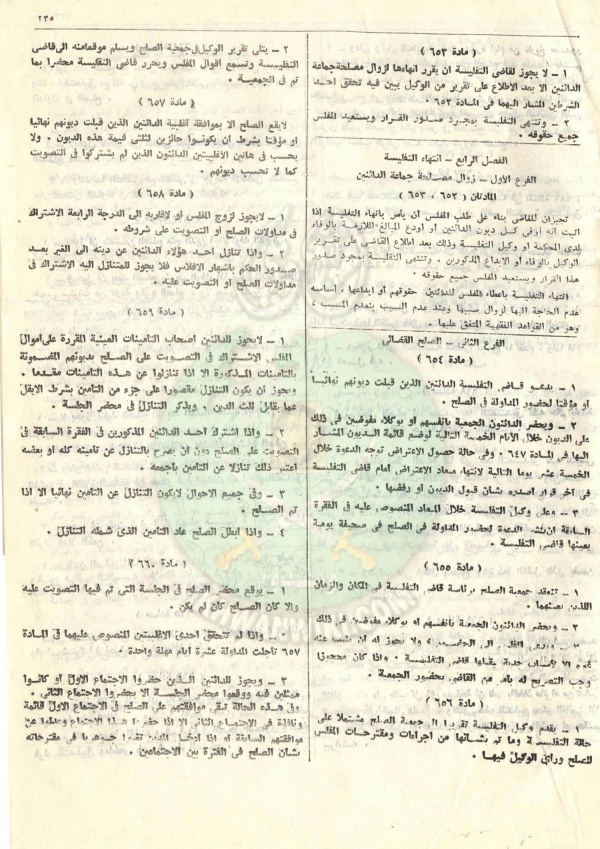 ٢٣٥
( مادة ٦٥٣ )
١ – لا يجوز لقاضى التفليسة ان يقرر انهاءها لزوال مصلحة جماعة
الدائنين الا بعد الاطلاع على تقرير من الوكيل يبين فيه تحقق احد
الشرطين المشار اليهما فى المادة ٦٥٣ .
٢ – وتنتهى التفليسة بمجرد صدور القرار ويستعيد المفلس
جميع حقوقه .
الفصل الرابع – انتهاء التفليسة
الفرع الأول – زوال مصلحة جماعة الدائنين
المادتان ( ٦٥٢ ، ٦٥٣ )
تجيزان للقاضى بناء على طلب المفلس ان يأمر بانهاء التفليسة اذا
اثبت انه أوفى كل ديون الدائنين أو اودع المبالغ اللازمة للوفاء
لدى المحكمة او وكيل التفليسة وذلك بعد اطلاع القاضى على تقرير
الوكيل بالوفاء أو الايداع المذكورين . وتنتهى التفليسة بمجرد صدور
هذا القرار ويستعيد المفلس جميع حقوقه .
انتهاء التفليسة باعطاء المفلس للدائنين حقوقهم أو ايداعها ، أساسه
عدم الحاجة اليها لزوال سببها وعند عدم السبب ينعدم المسبب ،
وهو من القواعد الفقهية المتفق عليها .
الفرع الثانى – الصلح القضائى
( مادة ٦٥٤ )
١ – يدعو قاضى التفليسة الدائنين الذين قبلت ديونهم نهائيا
أو مؤقتا لحضور المداولة فى الصلح .
٢ – ويحضر الدائنون الجمعية بانفسهم او بوكلاء مفوضين فى ذلك
على الديون خلال الأيام الخمسة التالية لوضع قائمة الديون المشار
اليها فى المادة ٦٤٧ . وفى حالة حصول الاعتراض توجه الدعوة خلال
الخمسة عشر يوما التالية لانتهاء ميعاد الاعتراض امام قاضى التفليسة
فى آخر قرار اصدره بشأن قبول الديون او رفضها .
٣ – وعلى وكيل التفليسة خلال الميعاد المنصوص عليه فى الفقرة
السابقة ان ينشر الدعوة لحضور المداولة فى الصلح فى صحيفة يومية
يعينها قاضى التفليسة .
( مادة ٦٥٥ )
١ – تنعقد جمعية الصلح برئاسة قاضى التفليسة فى المكان والزمان
اللذين يعينهما .
٢ – ويحضر الدائنون الجمعية بانفسهم او بوكلاء مفوضين فى ذلك
٣ – ويدعى المفلس الى الحضور ، ولا يجوز له ان ينيب عنه
غيره الا لأسباب جدية يقبلها قاضى التفليسة . واذا كان محجوزا
وجب التصريح له بامر من القاضى بحضور الجمعية .
( مادة ٦٥٦ )
١ – يقدم وكيل التفليسة تقريرا الى جمعية الصلح مشتملا على
حالة التفليسة وما تم بشأنها من اجراءات ومقترحات المفلس
للصلح ورأى الوكيل فيها .
٢ – يتلى تقرير الوكيل فى جمعية الصلح ويسلم موقعا منه الى قاضى
التفليسة وتسمع اقوال المفلس ويحرر قاضى التفليسة محضرا بما
تم فى الجمعية .
( مادة ٦٥٧ )
لا يقع الصلح الا بموافقة اغلبية الدائنين الذين قبلت ديونهم نهائيا
او مؤقتا بشرط ان يكونوا حائزين لثلثى قيمة هذه الديون . ولا
يحسب فى هاتين الأغلبيتين الدائنون الذين لم يشتركوا فى التصويت
كما لا تحسب ديونهم .
( مادة ٦٥٨ )
١ – لا يجوز لزوج المفلس او لاقاربه الى الدرجة الرابعة الاشتراك
فى مداولات الصلح او التصويت على شروطه .
٢ – واذا تنازل احد هؤلاء الدائنين عن دينه الى الغير بعد
صدور الحكم باشهار الافلاس فلا يجوز للمتنازل اليه الاشتراك فى
مداولات الصلح او التصويت عليه .
( مادة ٦٥٩ )
١ – لا يجوز للدائنين اصحاب التأمينات العينية المقررة على اموال
المفلس الاشتراك فى التصويت على الصلح بديونهم المضمونة
بالتأمينات المذكورة الا اذا تنازلوا عن هذه التأمينات مقدما .
ويجوز أن يكون التنازل مقصورا على جزء من التأمين بشرط الا يقل
عما يقابل ثلث الدين . ويذكر التنازل فى محضر الجلسة .
٢ – واذا اشترك احد الدائنين المذكورين فى الفقرة السابقة فى
التصويت على الصلح دون ان يصرح بالتنازل عن تأمينه كله او بعضه
اعتبر ذلك تنازلا عن التأمين باجمعه .
٣ – وفى جميع الاحوال لا يكون التنازل عن التأمين نهائيا الا اذا
تم الصلح .
٤ – واذا ابطل الصلح عاد التأمين الذى شمله التنازل .
( مادة ٦٦٠ )
١ – يوقع محضر الصلح فى الجلسة التى تم فيها التصويت عليه
والا كان الصلح كأن لم يكن .
٢ – واذا لم تتحقق احدى الاغلبيتين المنصوص عليهما فى المادة
٦٥٧ تأجلت المداولة عشرة أيام مهلة واحدة .
٣ – ويجوز للدائنين الذين حضروا الاجتماع الاول او كانوا
ممثلين فيه ووقعوا محضر الجلسة الا يحضروا الاجتماع الثانى .
وفى هذه الحالة تبقى موافقتهم على الصلح فى الاجتماع الاول قائمة
ونافذة فى الاجتماع الثانى الا اذا حضروا هذا الاجتماع وعدلوا عن
موافقتهم السابقة او اذا ادخل المدين تغييرا جوهريا فى مقترحاته
بشأن الصلح فى الفترة بين الاجتماعين .